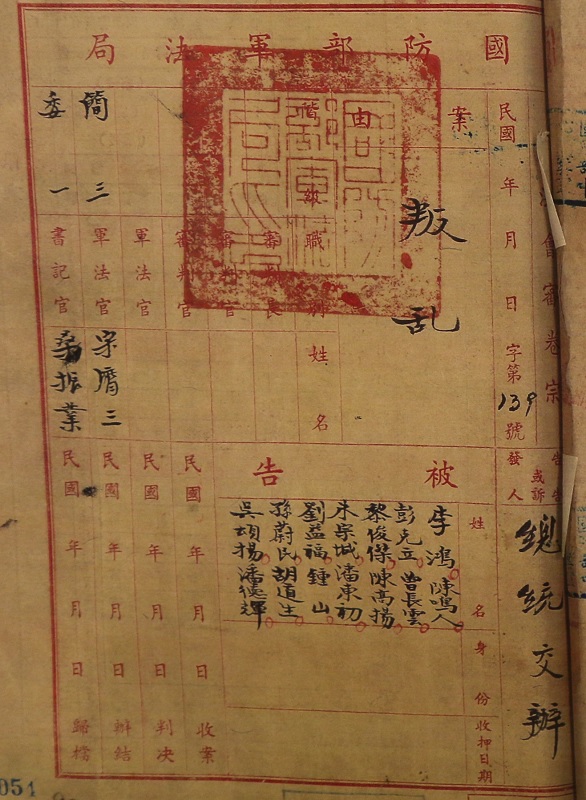 國防部軍法局
法會審卷宗
民國 年 月 日 字第139號
案由
叛乱
階級 職別 姓名
審判長
審判官
審判官
軍法官
簡三 軍法官 宗膺三
委一 書記官 桑振業
告發人
或
告訴
總統交辦
被告
姓名
李鴻 陳鳴人
彭克立 曾長雲
黎俊傑 陳高揚
朱宗城 潘東初
劉益福 鍾山
孫蔚民 胡道生
吳頌揚 潘德輝
身份
收押日期
民國 年 月 日 收案
民國 年 月 日 判決
民國 年 月 日 辦結
民國 年 月 日 歸檔
051